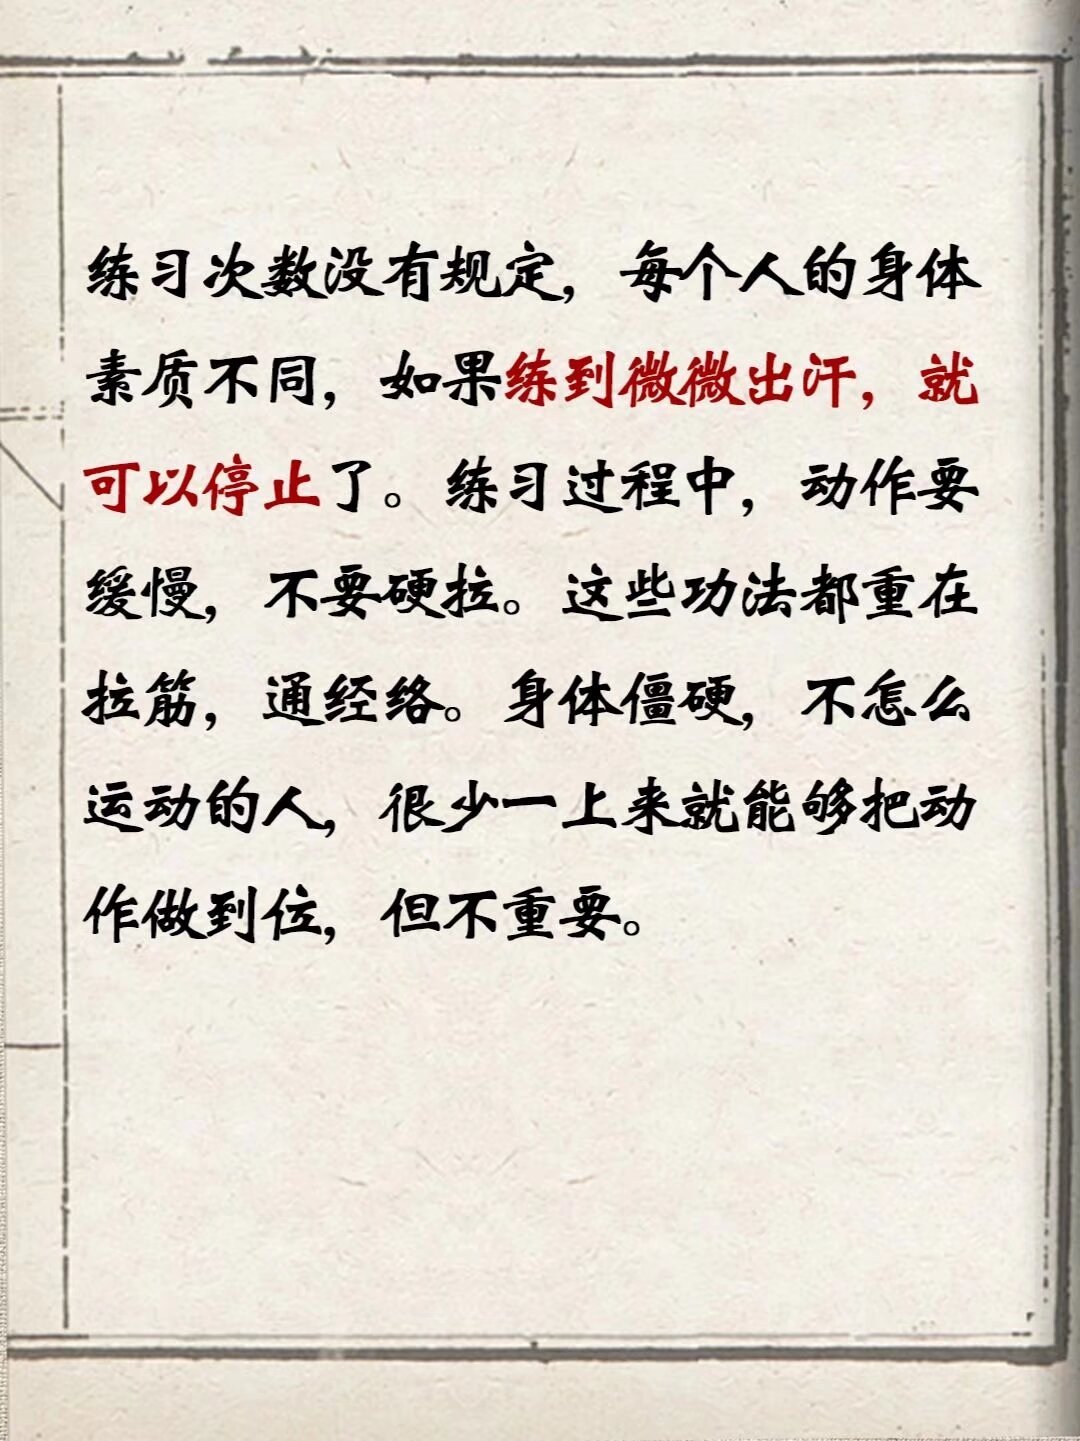 练习次数没有规定，每个人的身体
素质不同，如果练到微微出汗，就
可以停止了。练习过程中，动作要
缓慢，不要硬拉。这些功法都重在
拉筋，通经络。身体僵硬，不怎么
运动的人，很少一上来就能够把动
作做到位，但不重要。